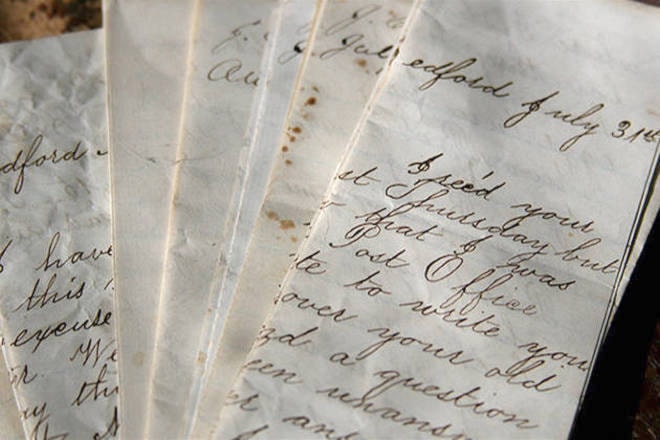 dford
I have
this
excuse
r. We
y th
J.
Au
Jul
edford July 31st
I rec'd your
st Thursday but
that I was
Post Office
te to write you
over your old
d a question
een unansw
er an